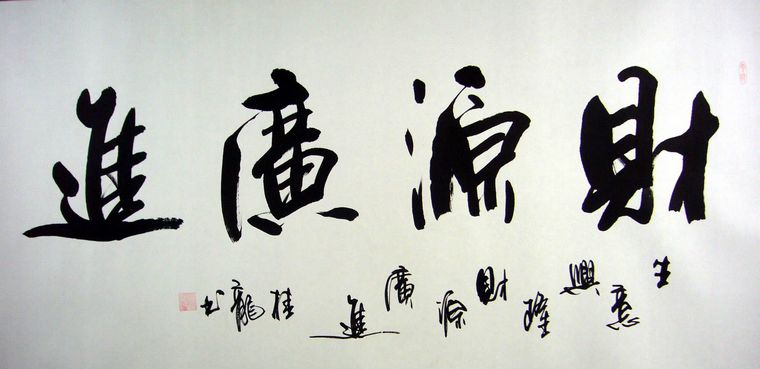 財源廣進
生意興隆財源廣進桂龍书